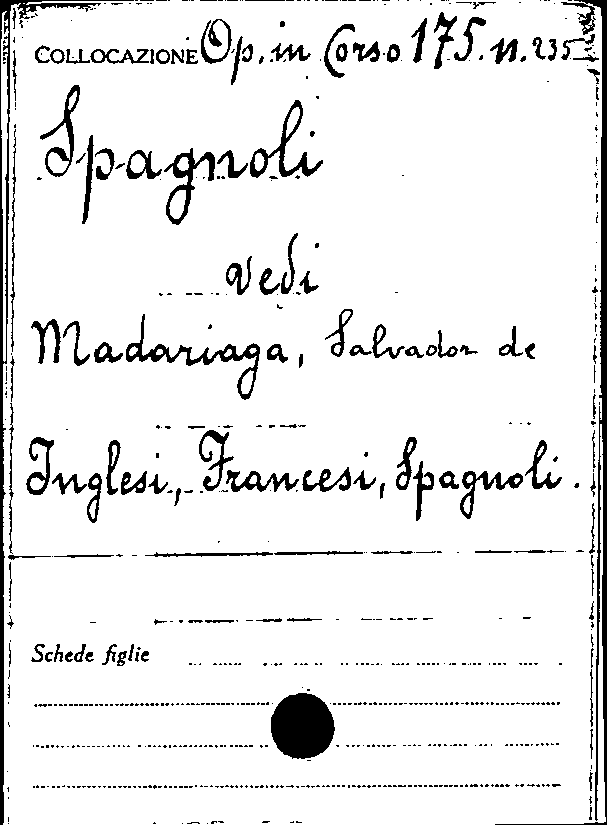 COLLOCAZIONE Op. in Corso 175. n. 235
Spagnoli
vedi
Madariaga, Salvador de
Inglesi, Francesi, Spagnoli.
Schede figlie